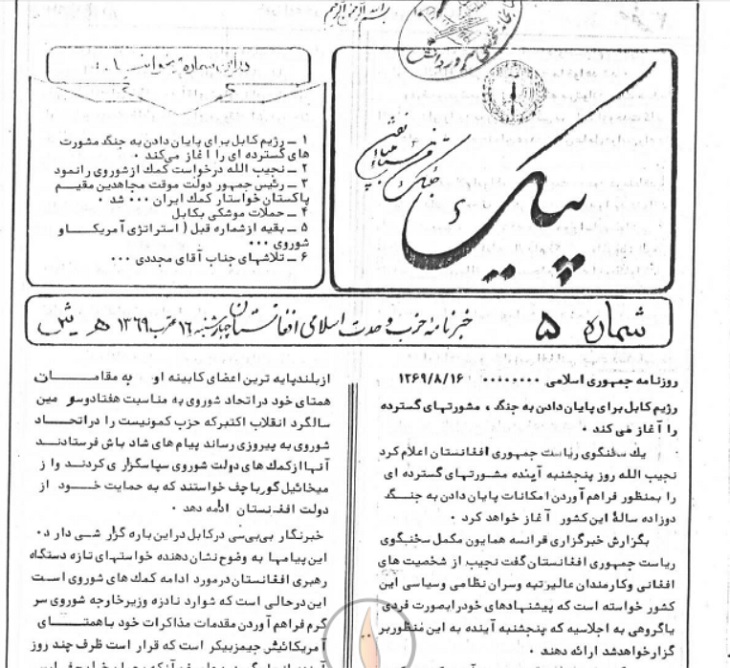 بسم الله الرحمن الرحیم
پیک
شماره ۵ خبرنامه حزب وحدت اسلامی افغانستان چهارشنبه ۱۶ عقرب ۱۳۶۹ هـ ش
در این شماره میخوانید
۱ ــ رژیم کابل برای پایان دادن به جنگ مشورت
های گسترده ای را آغاز می‌کند ۰
۲ ــ نجیب الله درخواست کمك از شوروی را نمود
۳ ــ رئیس جمهور دولت موقت مجاهدین مقیم
پاکستان خواستار کمك ایران ۰۰۰ شد ۰
۴ ــ حملات موشکی بکابل
۵ ــ بقیه از شماره قبل ( استراتژی آمریکا و
شوروی ۰۰۰
۶ ــ تلاشهای جناب آقای مجددی ۰۰۰
روزنامه جمهوری اسلامی ۰۰۰۰۰۰۰۰ ۱۳۶۹/۸/۱۶
رژیم کابل برای پایان دادن به جنگ ، مشورتهای گسترده
را آغاز می کند ۰
یك سخنگوی ریاست جمهوری افغانستان اعلام کرد
نجیب الله روز پنجشنبه آینده مشورتهای گسترده ای
را بمنظور فراهم آوردن امکانات پایان دادن به جنگ
دوازده سالهٔ این کشور آغاز خواهد کرد ۰
بگزارش خبرگزاری فرانسه همایون مکمل سخنگوی
ریاست جمهوری افغانستان گفت نجیب از شخصیت های
افغانی وکارمندان عالیرتبه وسران نظامی وسیاسی این
کشور خواسته است که پیشنهادهای خودرابصورت فردی
یاگروهی به اجلاسیه که پنجشنبه آینده به این منظوربر
گزارخواهدشد ارائه دهند ۰
ازبلندپایه ترین اعضای کابینه او به مقامات
همتای خود دراتحاد شوروی به مناسبت هفتادوسو مین
سالگرد انقلاب اکتبرکه حزب کمونیست را دراتحاد
شوروی به پیروزی رساند پیام های شاد باش فرستادند
آنها ازکمك های دولت شوروی سپاسگزار ی کردند وا ز
میخائیل گورباچف خواستند که به حمایت خود از
دولت افغانستان ادامه دهد ۰
خبرنگار بی‌بی‌سی درکابل دراین باره گزار ش می دار د۰
این پیامها به وضوح نشان دهنده خواستهای تازه دستگاه
رهبری افغانستان درمورد ادامه کمك های شوروی است
این درحالی است که شوارد نادزه وزیرخارجه شوروی سر
گرم فراهم آوردن مقدمات مذاکرات خود با همتای
آمریکائیش جیمزبیکر است که قرار است ظرف چند روز